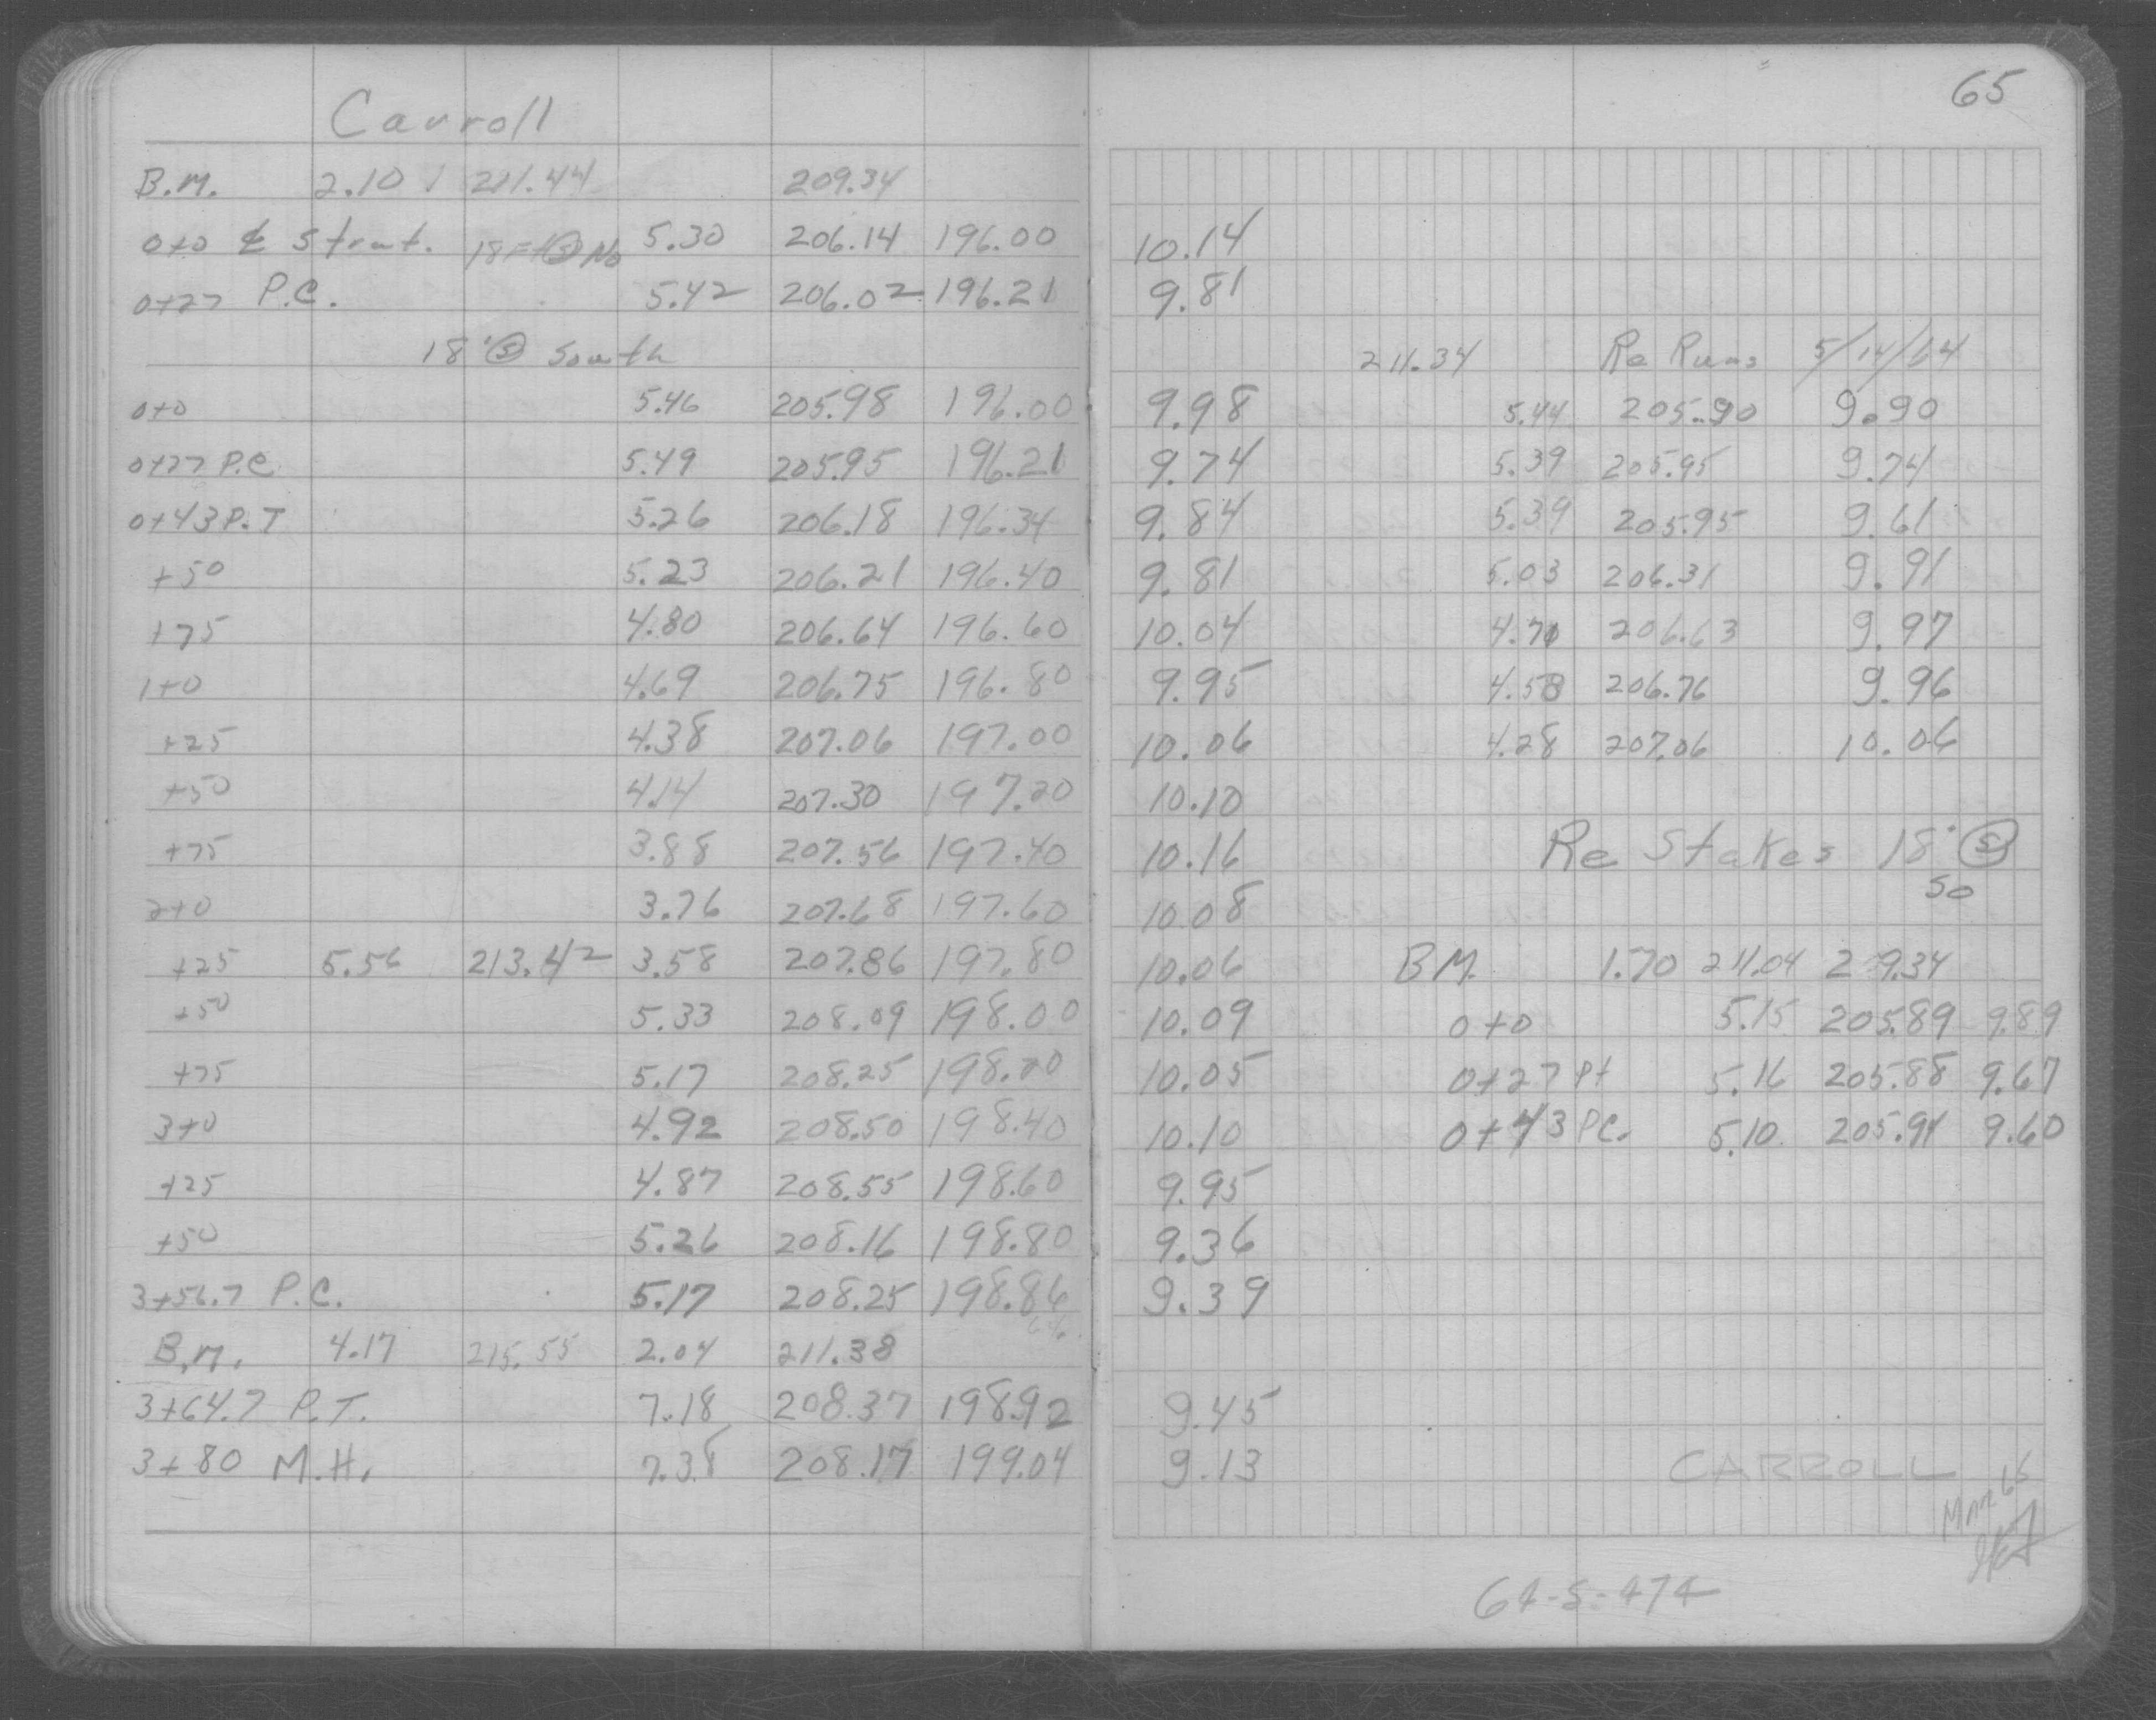 65
Carroll
B.M. 2.10 211.44 209.34
0+0 ₵ Strut. 18 Ft Ⓢ No 5.30 206.14 196.00 10.14
0+27 P.C. 5.42 206.02 196.21 9.81
18' Ⓢ South 211.34 Re Runs 5/14/64
0+0 5.46 205.98 196.00 9.98 5.44 205.90 9.90
0+27 P.C 5.49 205.95 196.21 9.74 5.39 205.95 9.74
0+43 P.T 5.26 206.18 196.34 9.84 5.39 205.95 9.61
+50 5.23 206.21 196.40 9.81 5.03 206.31 9.91
+75 4.80 206.64 196.60 10.04 4.71 206.63 9.97
1+0 4.69 206.75 196.80 9.95 4.58 206.76 9.96
+25 4.38 207.06 197.00 10.06 4.28 207.06 10.06
+50 4.14 207.30 197.20 10.10
+75 3.88 207.56 197.40 10.16 Re Stakes 18' Ⓢ
So
2+0 3.76 207.68 197.60 10.08
+25 5.56 213.42 3.58 207.86 197.80 10.06 BM. 1.70 211.04 209.34
+50 5.33 208.09 198.00 10.09 0+0 5.15 205.89 9.89
+75 5.17 208.25 198.20 10.05 0+27 Pt 5.16 205.88 9.67
3+0 4.92 208.50 198.40 10.10 0+43 PC. 5.10 205.94 9.60
+25 4.87 208.55 198.60 9.95
+50 5.26 208.16 198.80 9.36
3+56.7 P.C. 5.17 208.25 198.86 9.39
B.M. 4.17 215.55 2.04 211.38
3+64.7 P.T. 7.18 208.37 198.92 9.45
3+80 M.H. 7.38 208.17 199.04 9.13
CARROLL
64-S-474